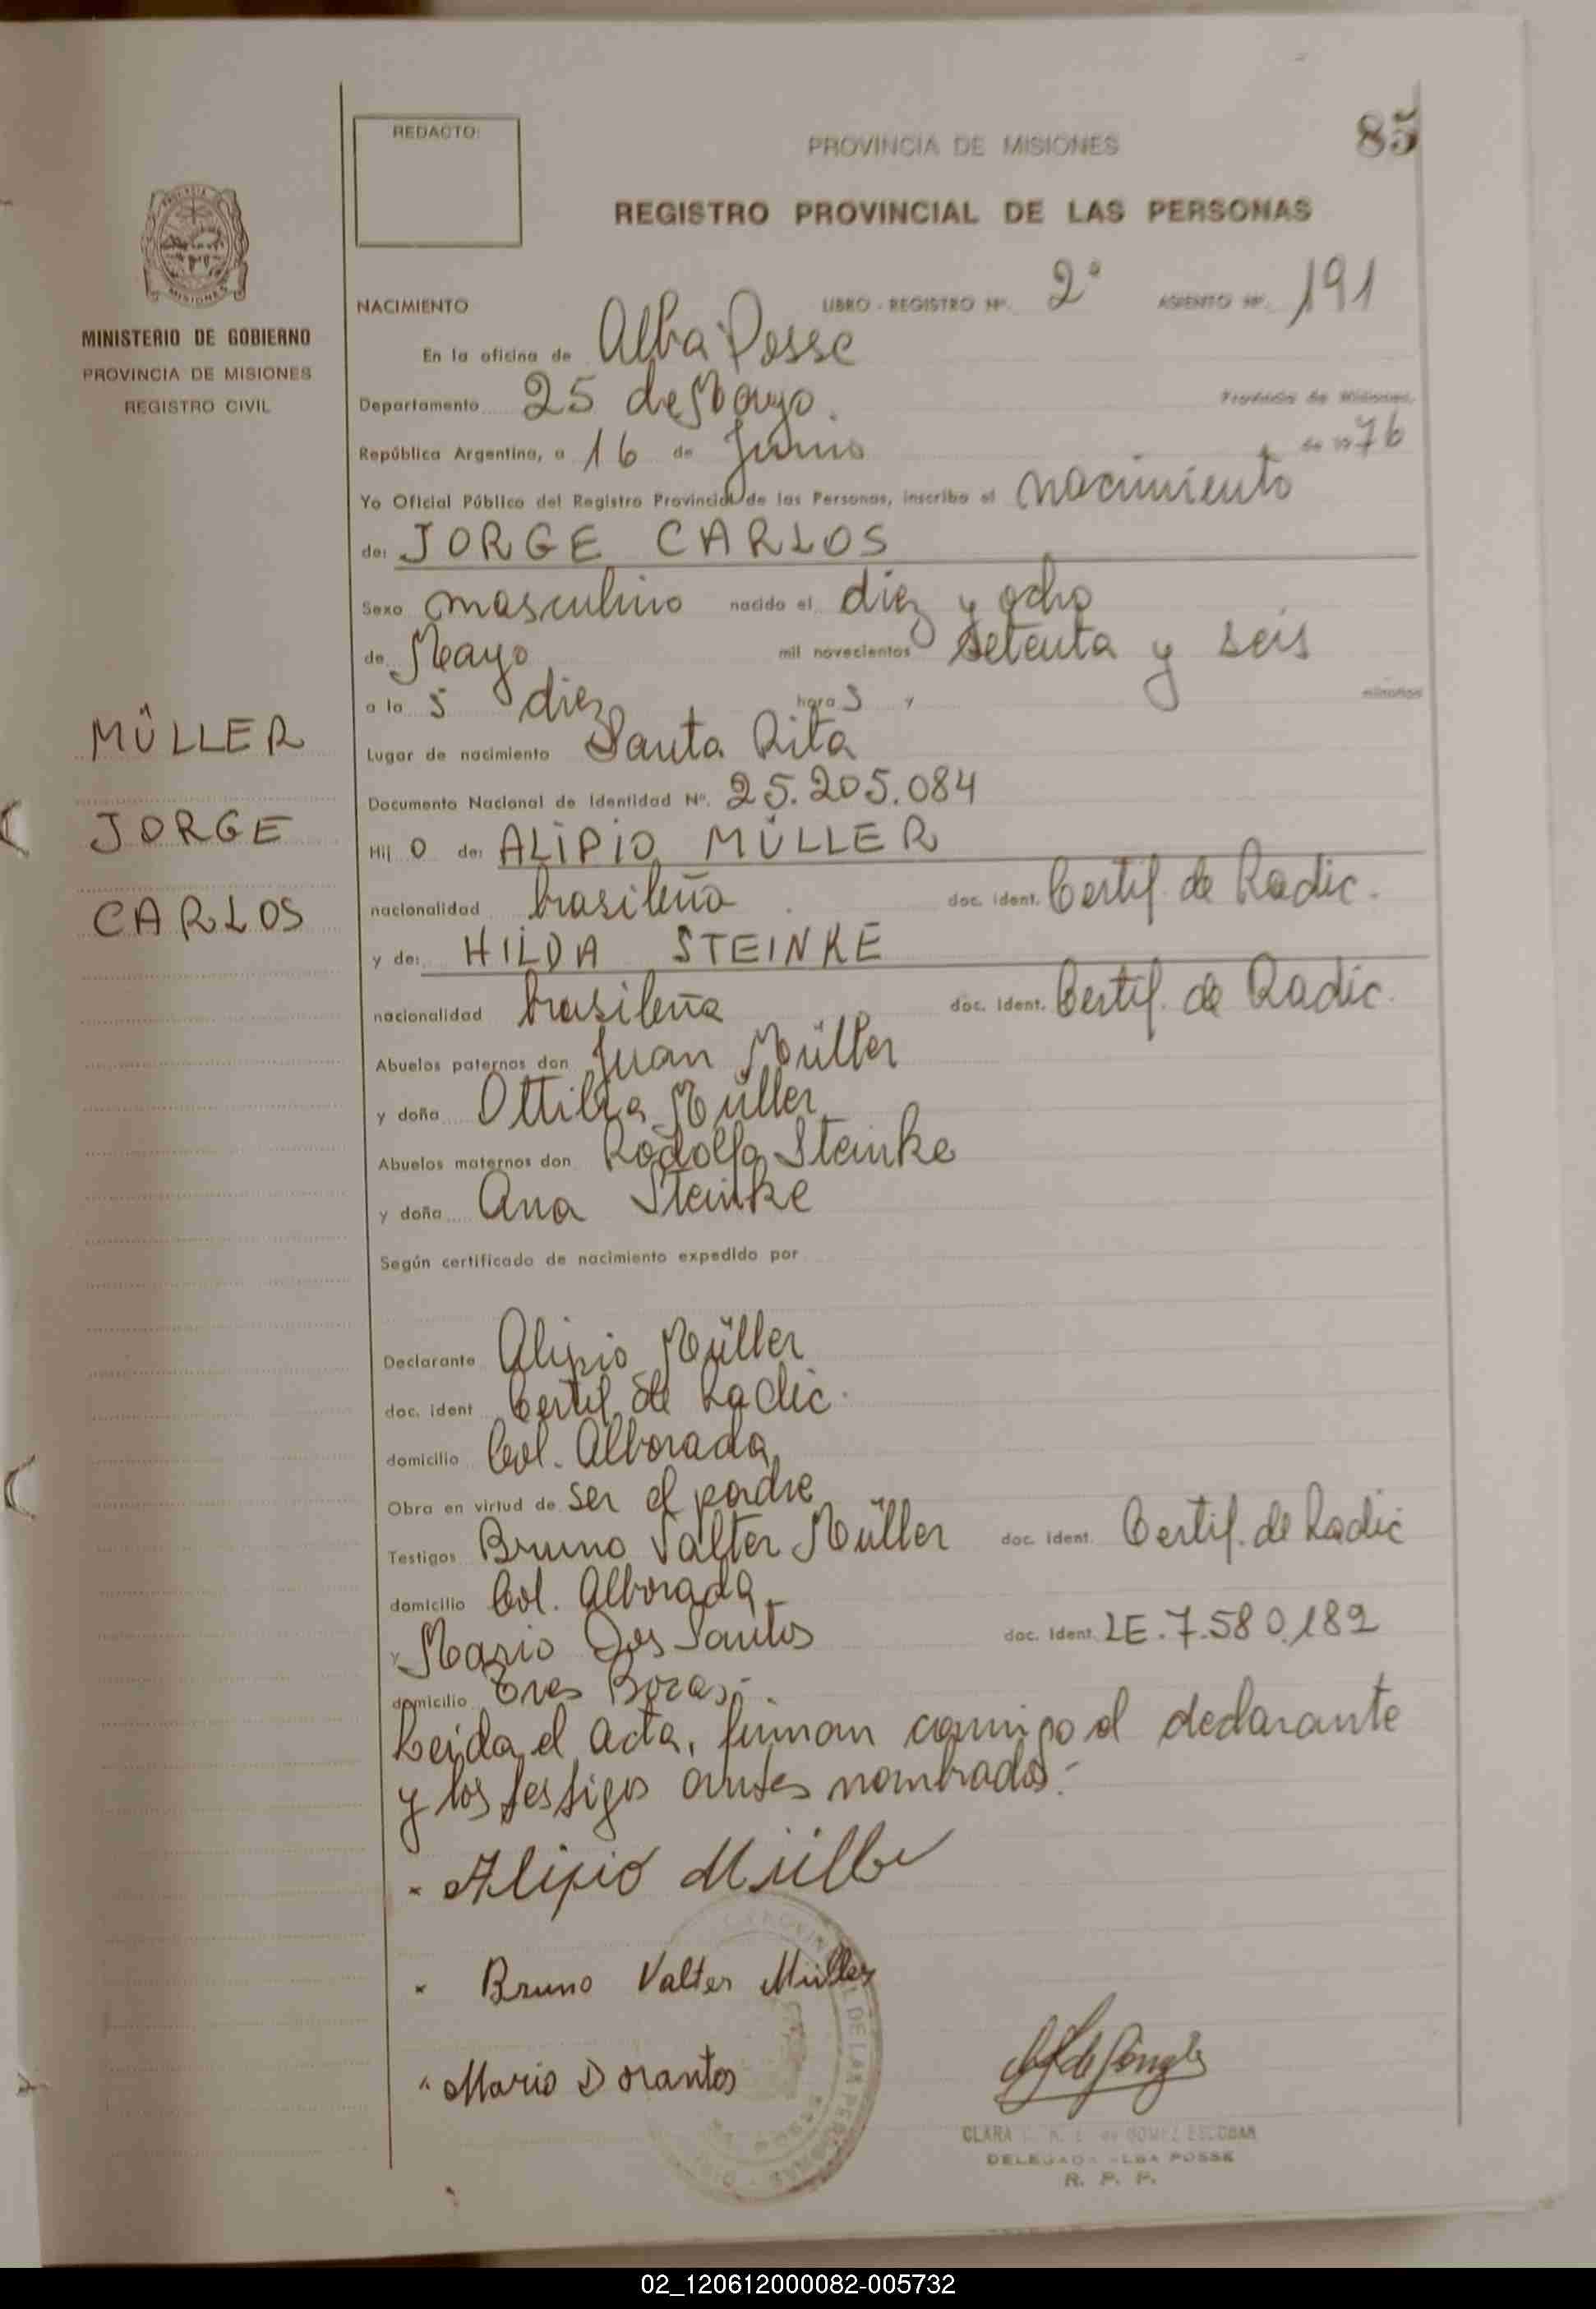 85
REDACTO:
PROVINCIA DE MISIONES
REGISTRO PROVINCIAL DE LAS PERSONAS
MISIONES
MINISTERIO DE GOBIERNO
PROVINCIA DE MISIONES
REGISTRO CIVIL
NACIMIENTO LIBRO - REGISTRO Nº. 2º ASIENTO Nº. 191
En la oficina de Alba Posse
Departamento 25 de Mayo. Provincia de Misiones,
República Argentina, a 16 de Junio de 1976
Yo Oficial Público del Registro Provincial de las Personas, inscribo el nacimiento
de: JORGE CARLOS
Sexo masculino nacido el diez y ocho
de Mayo mil novecientos setenta y seis
a la s diez hora s y minutos
Lugar de nacimiento Santa Rita
Documento Nacional de Identidad Nº. 25.205.084
Hij o de: ALIPIO MÜLLER
nacionalidad brasileña doc. ident. Certif. de Radic.
y de: HILDA STEINKE
nacionalidad brasileña doc. ident. Certif. de Radic.
Abuelos paternos don Juan Müller
y doña Ottilia Müller
Abuelos maternos don Rodolfo Steinke
y doña Ana Steinke
Según certificado de nacimiento expedido por
Declarante Alipio Müller
doc. ident Certif. de Radic.
domicilio Col. Alborada
Obra en virtud de ser el padre
Testigos Bruno Valter Müller doc. ident. Certif. de Radic
domicilio Col. Alborada
y Mario Dos Santos doc. ident. LE. 7.580.182
domicilio Tres Bocas.-
Leida el acta, firman conmigo el declarante
y los testigos antes nombrados.-
MÜLLER
JORGE
CARLOS
Alipio Müller
Bruno Valter Müller
Mario Dorantos
CLARA de GOMEZ ESCOBAR
DELEGADA ALBA POSSE
R. P. P.
02_120612000082-005732